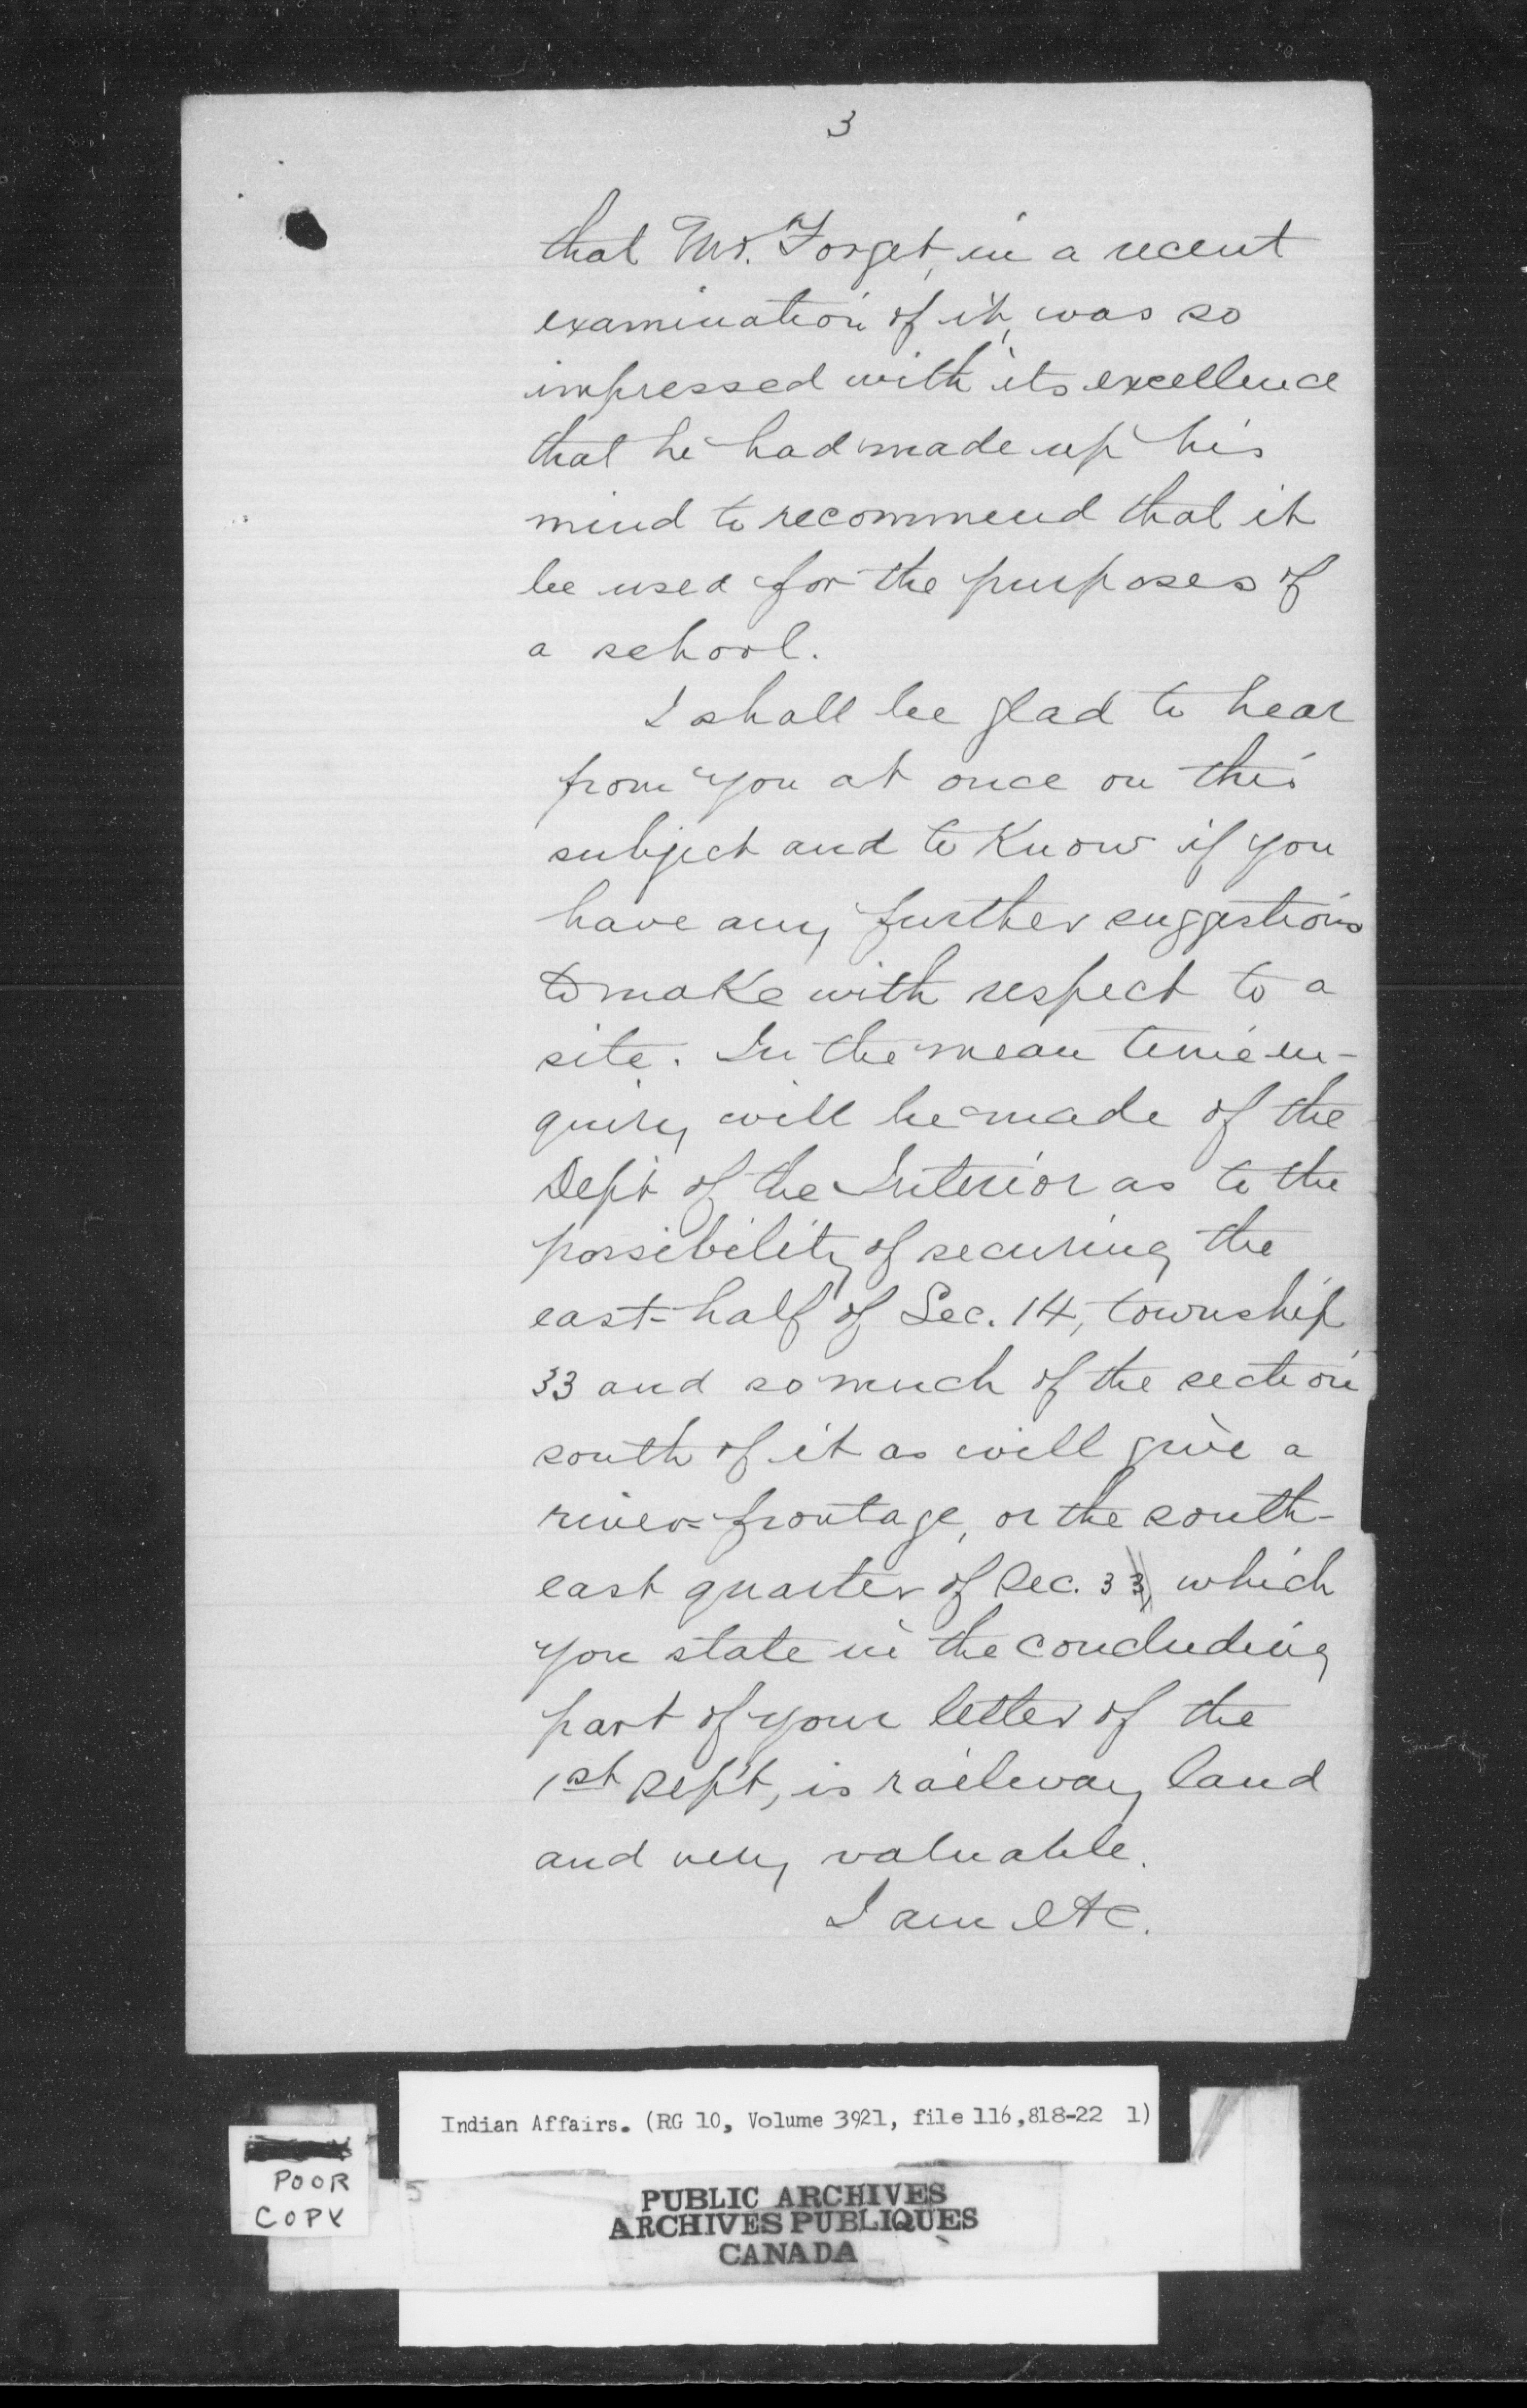 3
that Mr. Forget, in a recent
examination of it, was so
impressed with its excellence
that he had made up his
mind to recommend that it
be used for the purposes of
a school.
I shall be glad to hear
from you at once on this
subject and to know if you
have any further suggestions
to make with respect to a
site. In the mean time in-
quiry will be made of the
Dept of the Interior as to the
possibility of securing the
east-half of Sec. 14, township
33 and so much of the section
south of it as will give a
river-frontage, or the south-
east quarter of Sec. 33, which
you state in the concluding
part of your letter of the
1st Sept, is railway land
and very valuable.
I am etc.
Indian Affairs. (RG 10, Volume 3921, file 116,818-22 1)
POOR
COPY
5
PUBLIC ARCHIVES
ARCHIVES PUBLIQUES
CANADA